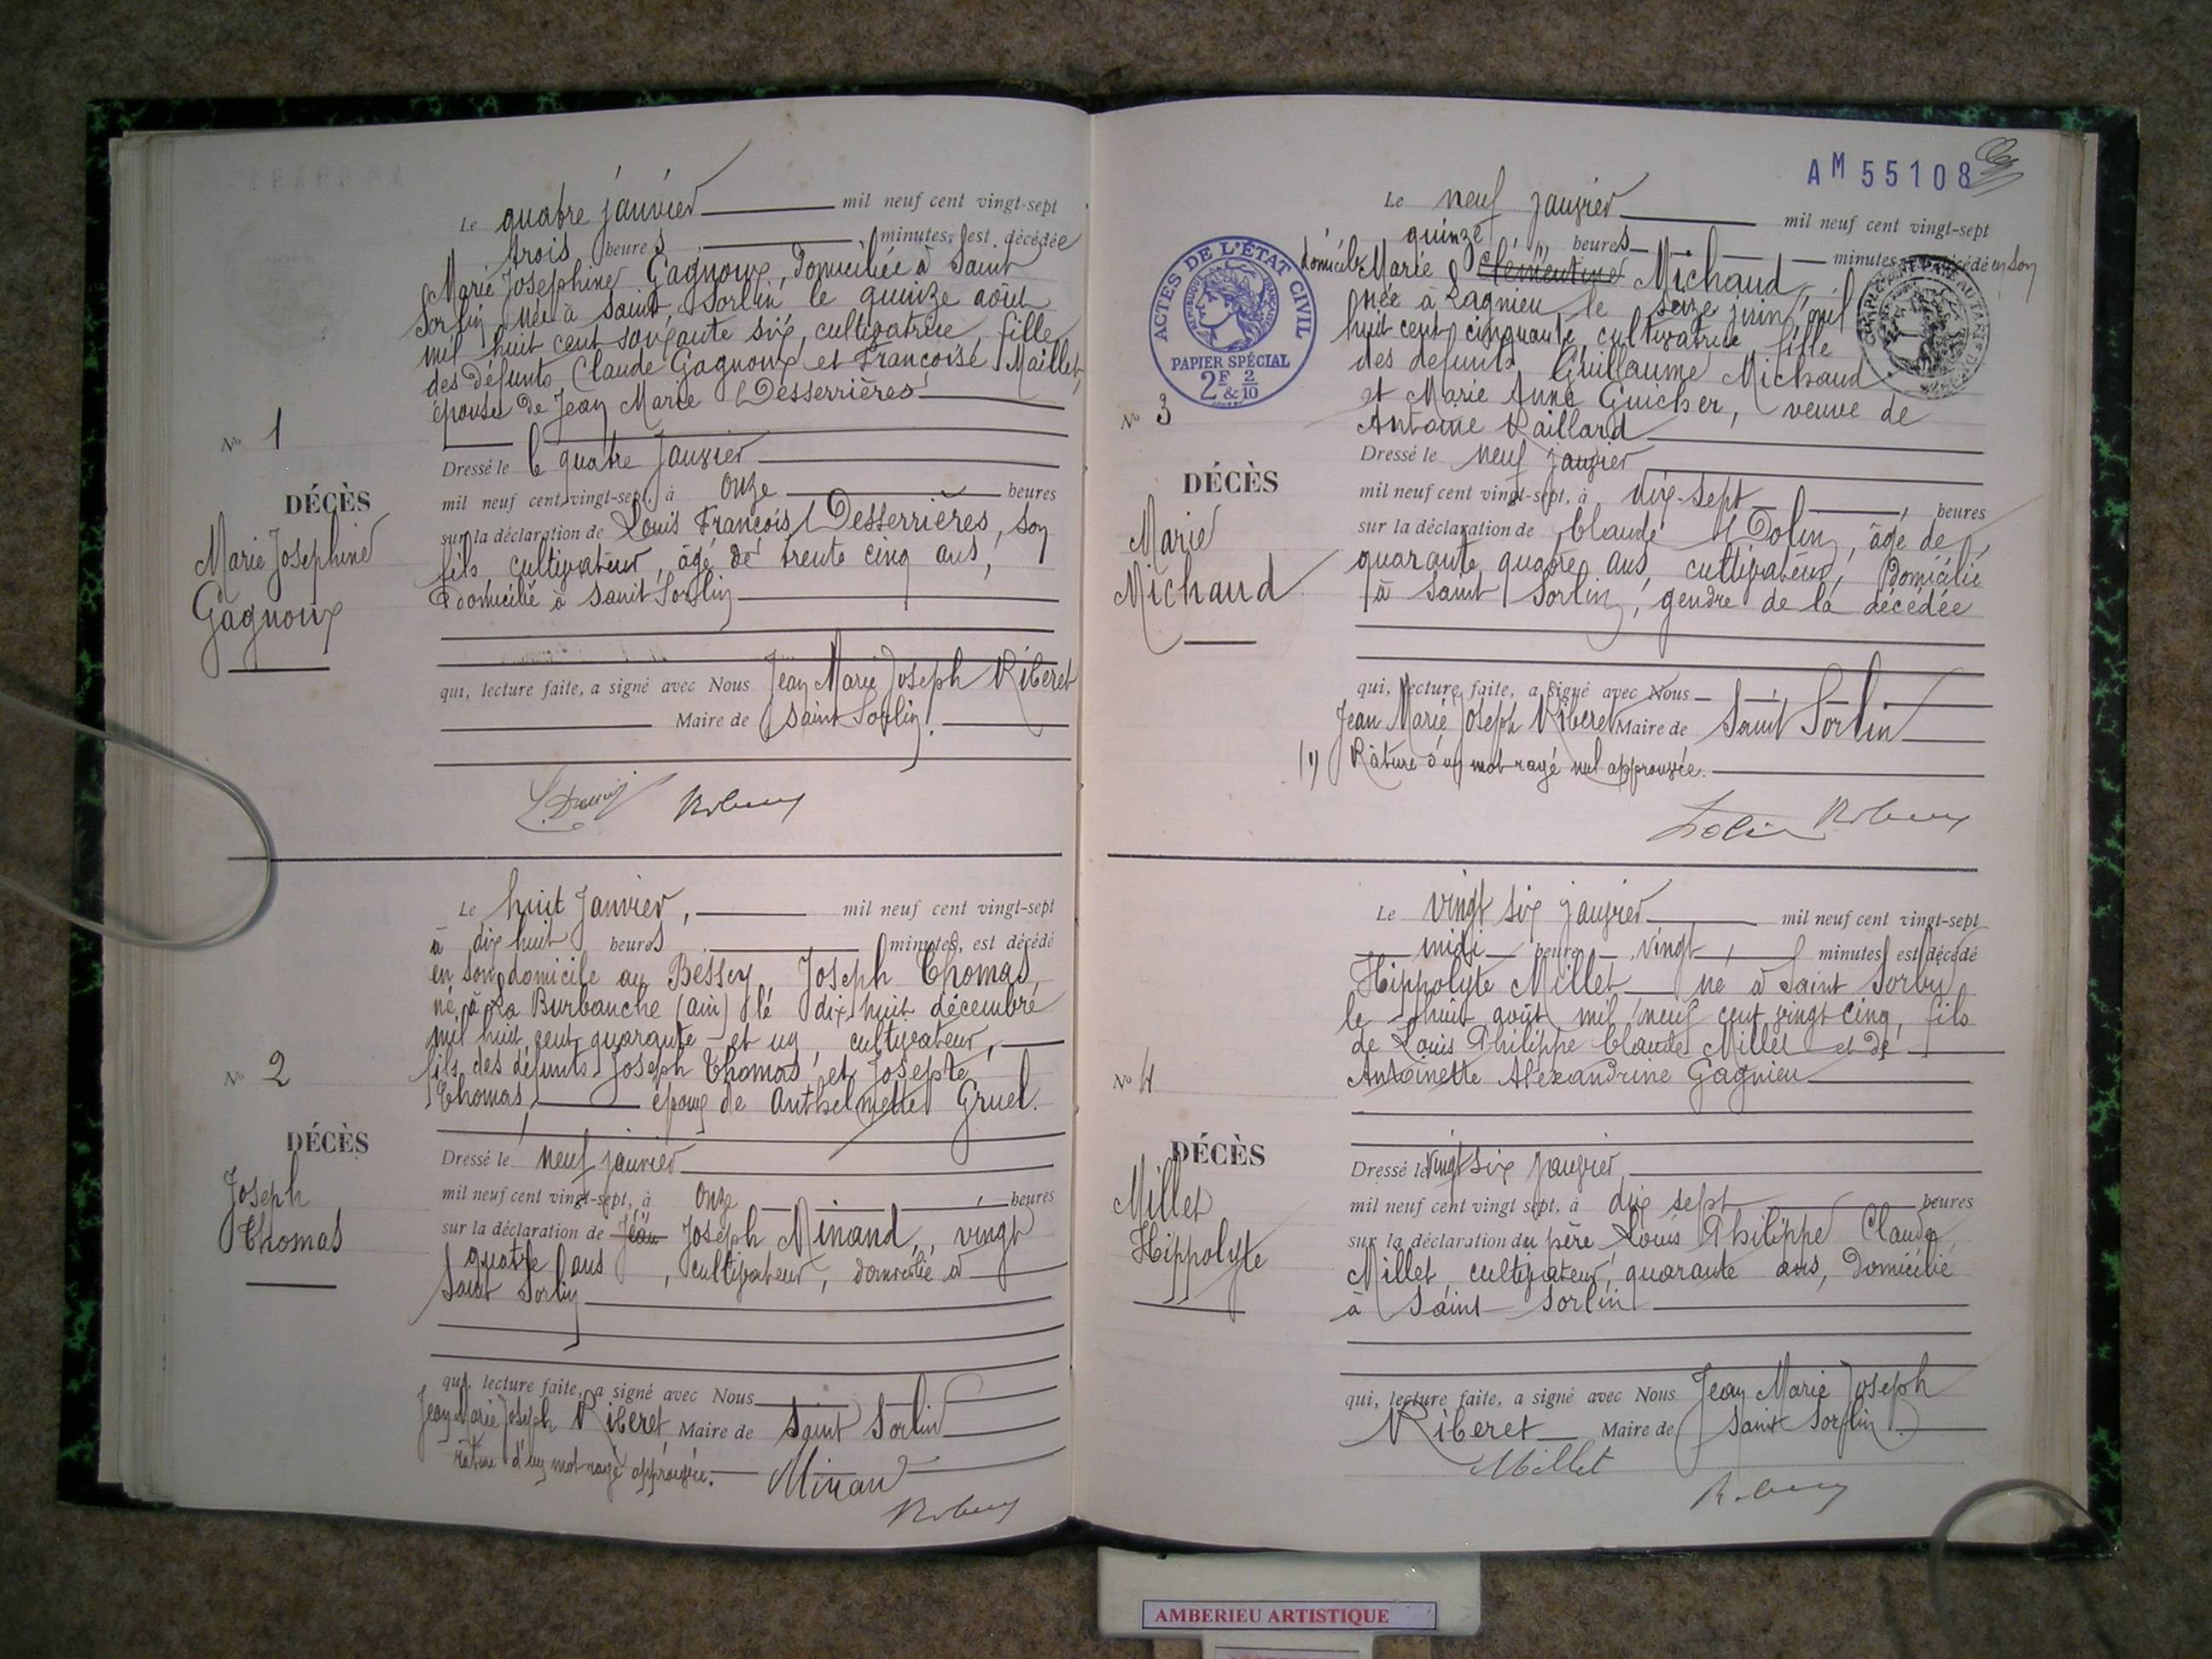 Le quatre janvier mil neuf cent vingt-sept
trois heures minutes, est décédée
Marie Josephine Gagnoux, domiciliée à Saint
Sorlin, née à Saint Sorlin le quinze août
mil huit cent soixante six, cultivatrice, fille
des défunts Claude Gagnoux et Françoise Maillet,
épouse de Jean Marie Desserrières
No 1
DÉCÈS
Marie Josephine
Gagnoux
Dressé le le quatre Janvier
mil neuf cent vingt-sept, à onze heures
sur la déclaration de Louis François Desserrières, son
fils cultivateur, âgé de trente cinq ans,
domicilié à Saint Sorlin
qui, lecture faite, a signé avec Nous Jean Marie Joseph Riberet
Maire de Saint Sorlin.
Le huit Janvier, mil neuf cent vingt-sept
à dix huit heures minutes, est décédé
en son domicile au Bessey Joseph Thomas,
né à La Burbanche (ain) le dix huit décembre
mil huit cent quarante et un, cultivateur,
fils des défunts Joseph Thomas et Josepte
Thomas, époux de Anthelmette Gruel.
No 2
DÉCÈS
Joseph
Thomas
Dressé le neuf janvier
mil neuf cent vingt-sept, à onze heures
sur la déclaration de Jean Joseph Minand, vingt
quatre ans, cultivateur, domicilié à
Saint Sorlin
qui, lecture faite, a signé avec Nous
Jean Marie Joseph Riberet Maire de Saint Sorlin
rature d'un mot rayé approuvée.
Minan
AM 55108
Le neuf janvier mil neuf cent vingt-sept
quinze heures minutes décédé en son
domicile Marie Clémentine (1) Michaud,
née à Lagnieu le seize juin mil
huit cent cinquante, cultivatrice, fille
des défunts Guillaume Michaud
et Marie Anne Guicher, veuve de
Antoine Raillard
ACTES DE L'ÉTAT CIVIL
PAPIER SPÉCIAL
2F & 2/10
No 3
DÉCÈS
Marie
Michaud
Dressé le neuf janvier
mil neuf cent vingt-sept, à dix-sept heures
sur la déclaration de Claude Dolin, âgé de
quarante quatre ans, cultivateur, domicilié
à Saint Sorlin, gendre de la décédée
qui, lecture faite, a signé avec Nous
Jean Marie Joseph Riberet Maire de Saint Sorlin
(1) Rature d'un mot rayé nul approuvée.
Dolin
Le vingt six janvier mil neuf cent vingt-sept
midi heure vingt minutes est décédé
Hippolyte Millet né à Saint Sorlin
le huit août mil neuf cent vingt cinq, fils
de Louis Philippe Claude Millet et de
Antoinette Alexandrine Gagnieu
No 4
DÉCÈS
Millet
Hippolyte
Dressé le vingt six janvier
mil neuf cent vingt sept, à dix sept heures
sur la déclaration du père Louis Philippe Claude
Millet, cultivateur, quarante ans, domicilié
à Saint Sorlin
qui, lecture faite, a signé avec Nous Jean Marie Joseph
Riberet Maire de Saint Sorlin
Millet
AMBERIEU ARTISTIQUE